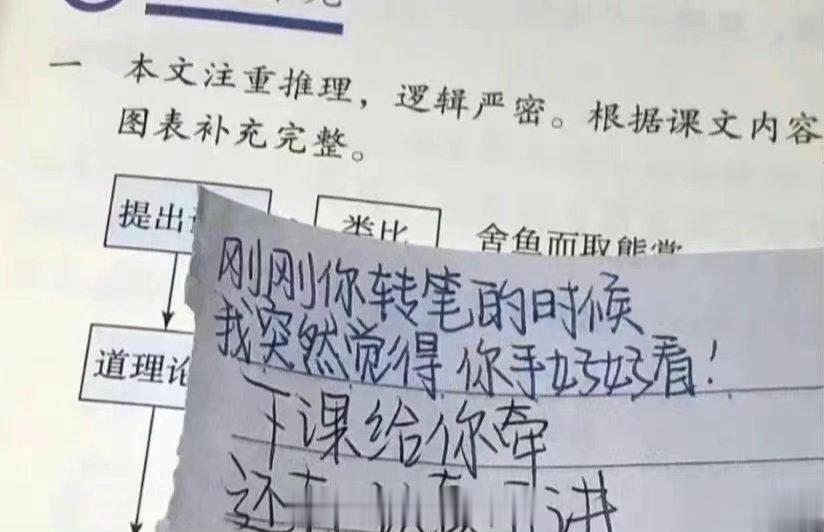 一 本文注重推理，逻辑严密。根据课文内容
图表补充完整。
提出
类比
舍鱼而取熊掌
道理论
刚刚你转笔的时候
我突然觉得你手好好看！
下课给你牵
还
讲